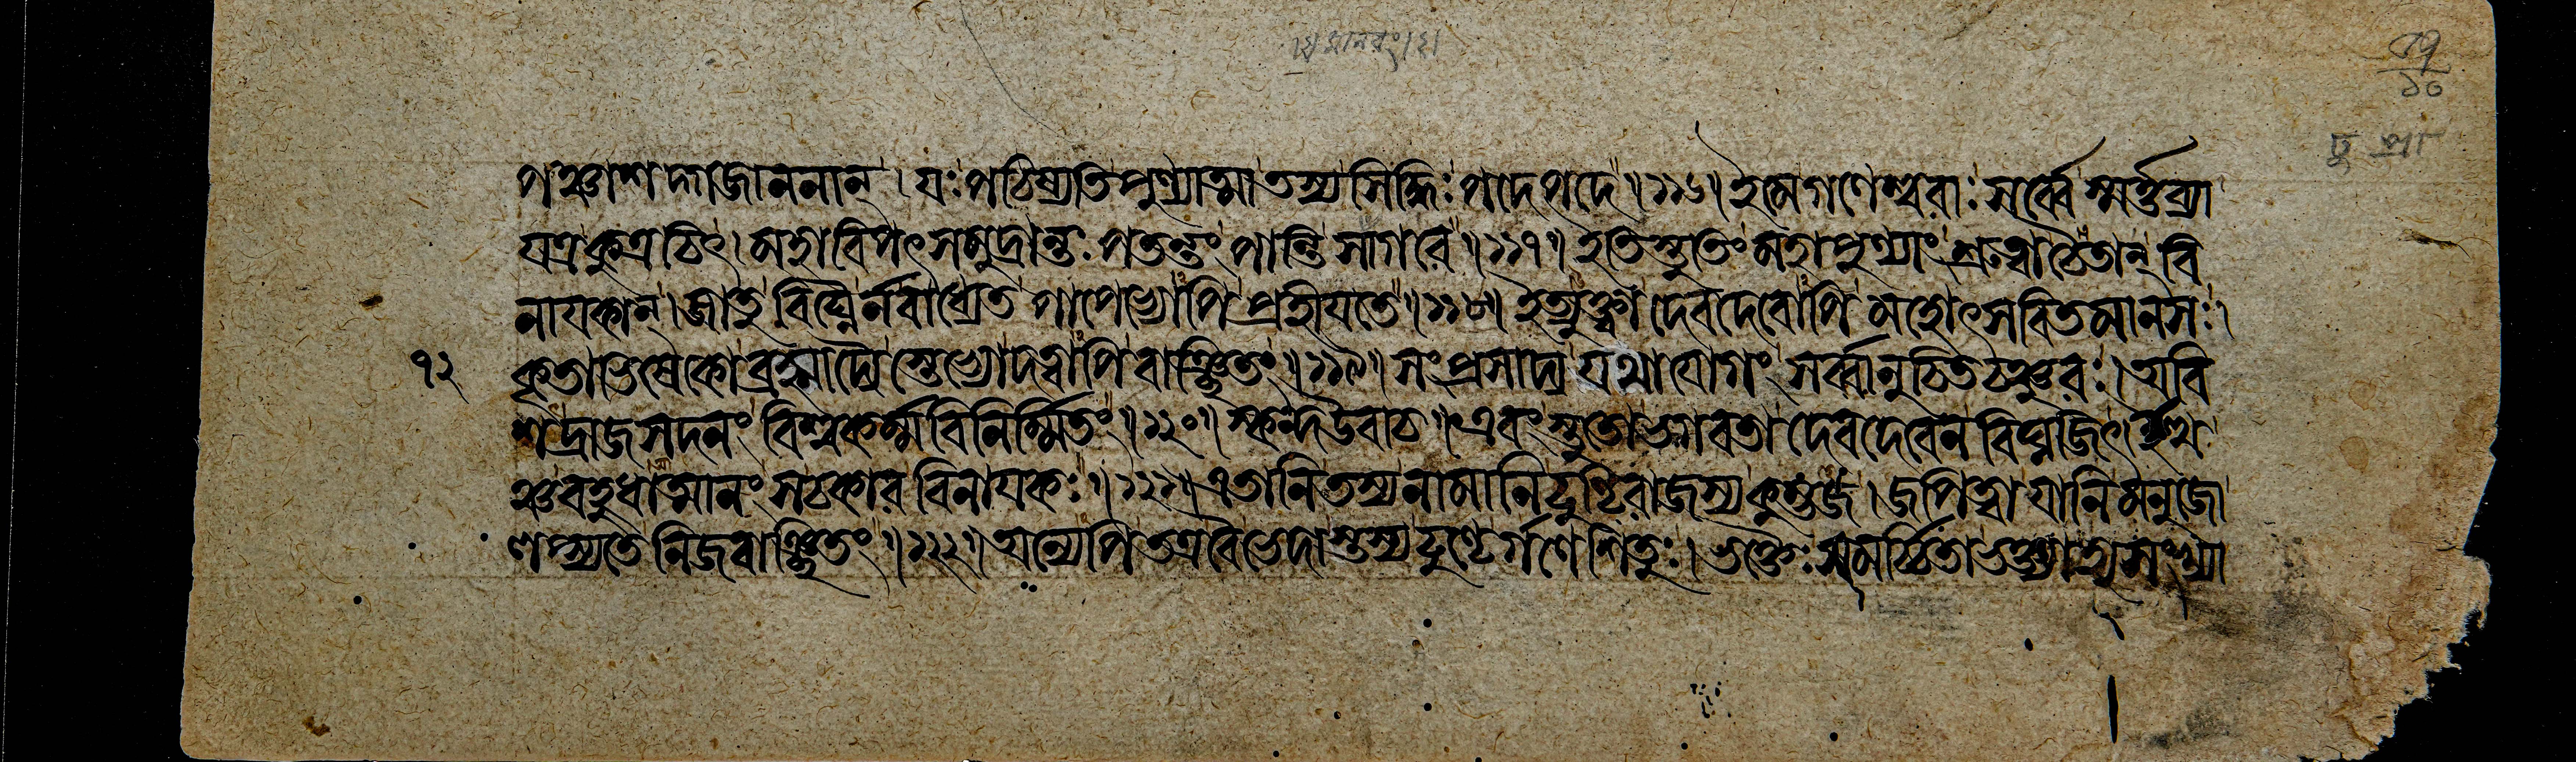 পঞ্চাশদ্গজাননান্। যঃ পঠিষ্যতি পুণ্যাত্মা তস্য সিদ্ধিঃ পদে পদে॥১১৬॥ ইমে গণেশ্বরাঃ সর্ব্বে স্মর্ত্তব্যা
যত্র কুত্রচিৎ। মহাবিপৎসমুদ্রান্তঃ পতন্তং পান্তি সাগরে॥১১৭॥ ইতি স্তুতিং মহাপুণ্যাং শ্রুত্বা চৈতান্ বি
নায়কান্। জাতু বিঘ্নৈর্নবাধ্যেত পাপেভ্যোপি প্রহীয়তে॥১১৮॥ ইত্যুক্ত্বা দেবদেবোপি মহোৎসবিতমানসঃ।
কৃতাভিষেকো ব্রহ্মাদ্যৈ স্তেভ্যো দত্বাপি বাঞ্ছিতং॥১১৯॥ সংপ্রসাদ্য যথাযোগং সর্ব্বানুচিতচঞ্চুরঃ। অবি
শদ্রাজসদনং বিশ্বকর্ম্মবিনির্ম্মিতং॥১২০॥ স্কন্দ উবাচ॥ এবং স্তুতো ভগবতা দেবদেবেন বিঘ্নজিৎ।
ঞ্চ বহুধাত্মানং সচকার বিনায়কঃ॥১২১॥ এতানি তস্য নামানি ঢুণ্ঢিরাজস্য কুম্ভজ। জপিত্বা যানি মনুজো
ণপ্স্যতে নিজবাঞ্ছিতং॥১২২॥ অন্যেপি তত্র বৈ ভেদাস্তস্য ঢুণ্ঢের্গণেশিতুঃ। ভক্তৈঃ সমর্চ্চিতা ভক্ত্যা
৭২
১০